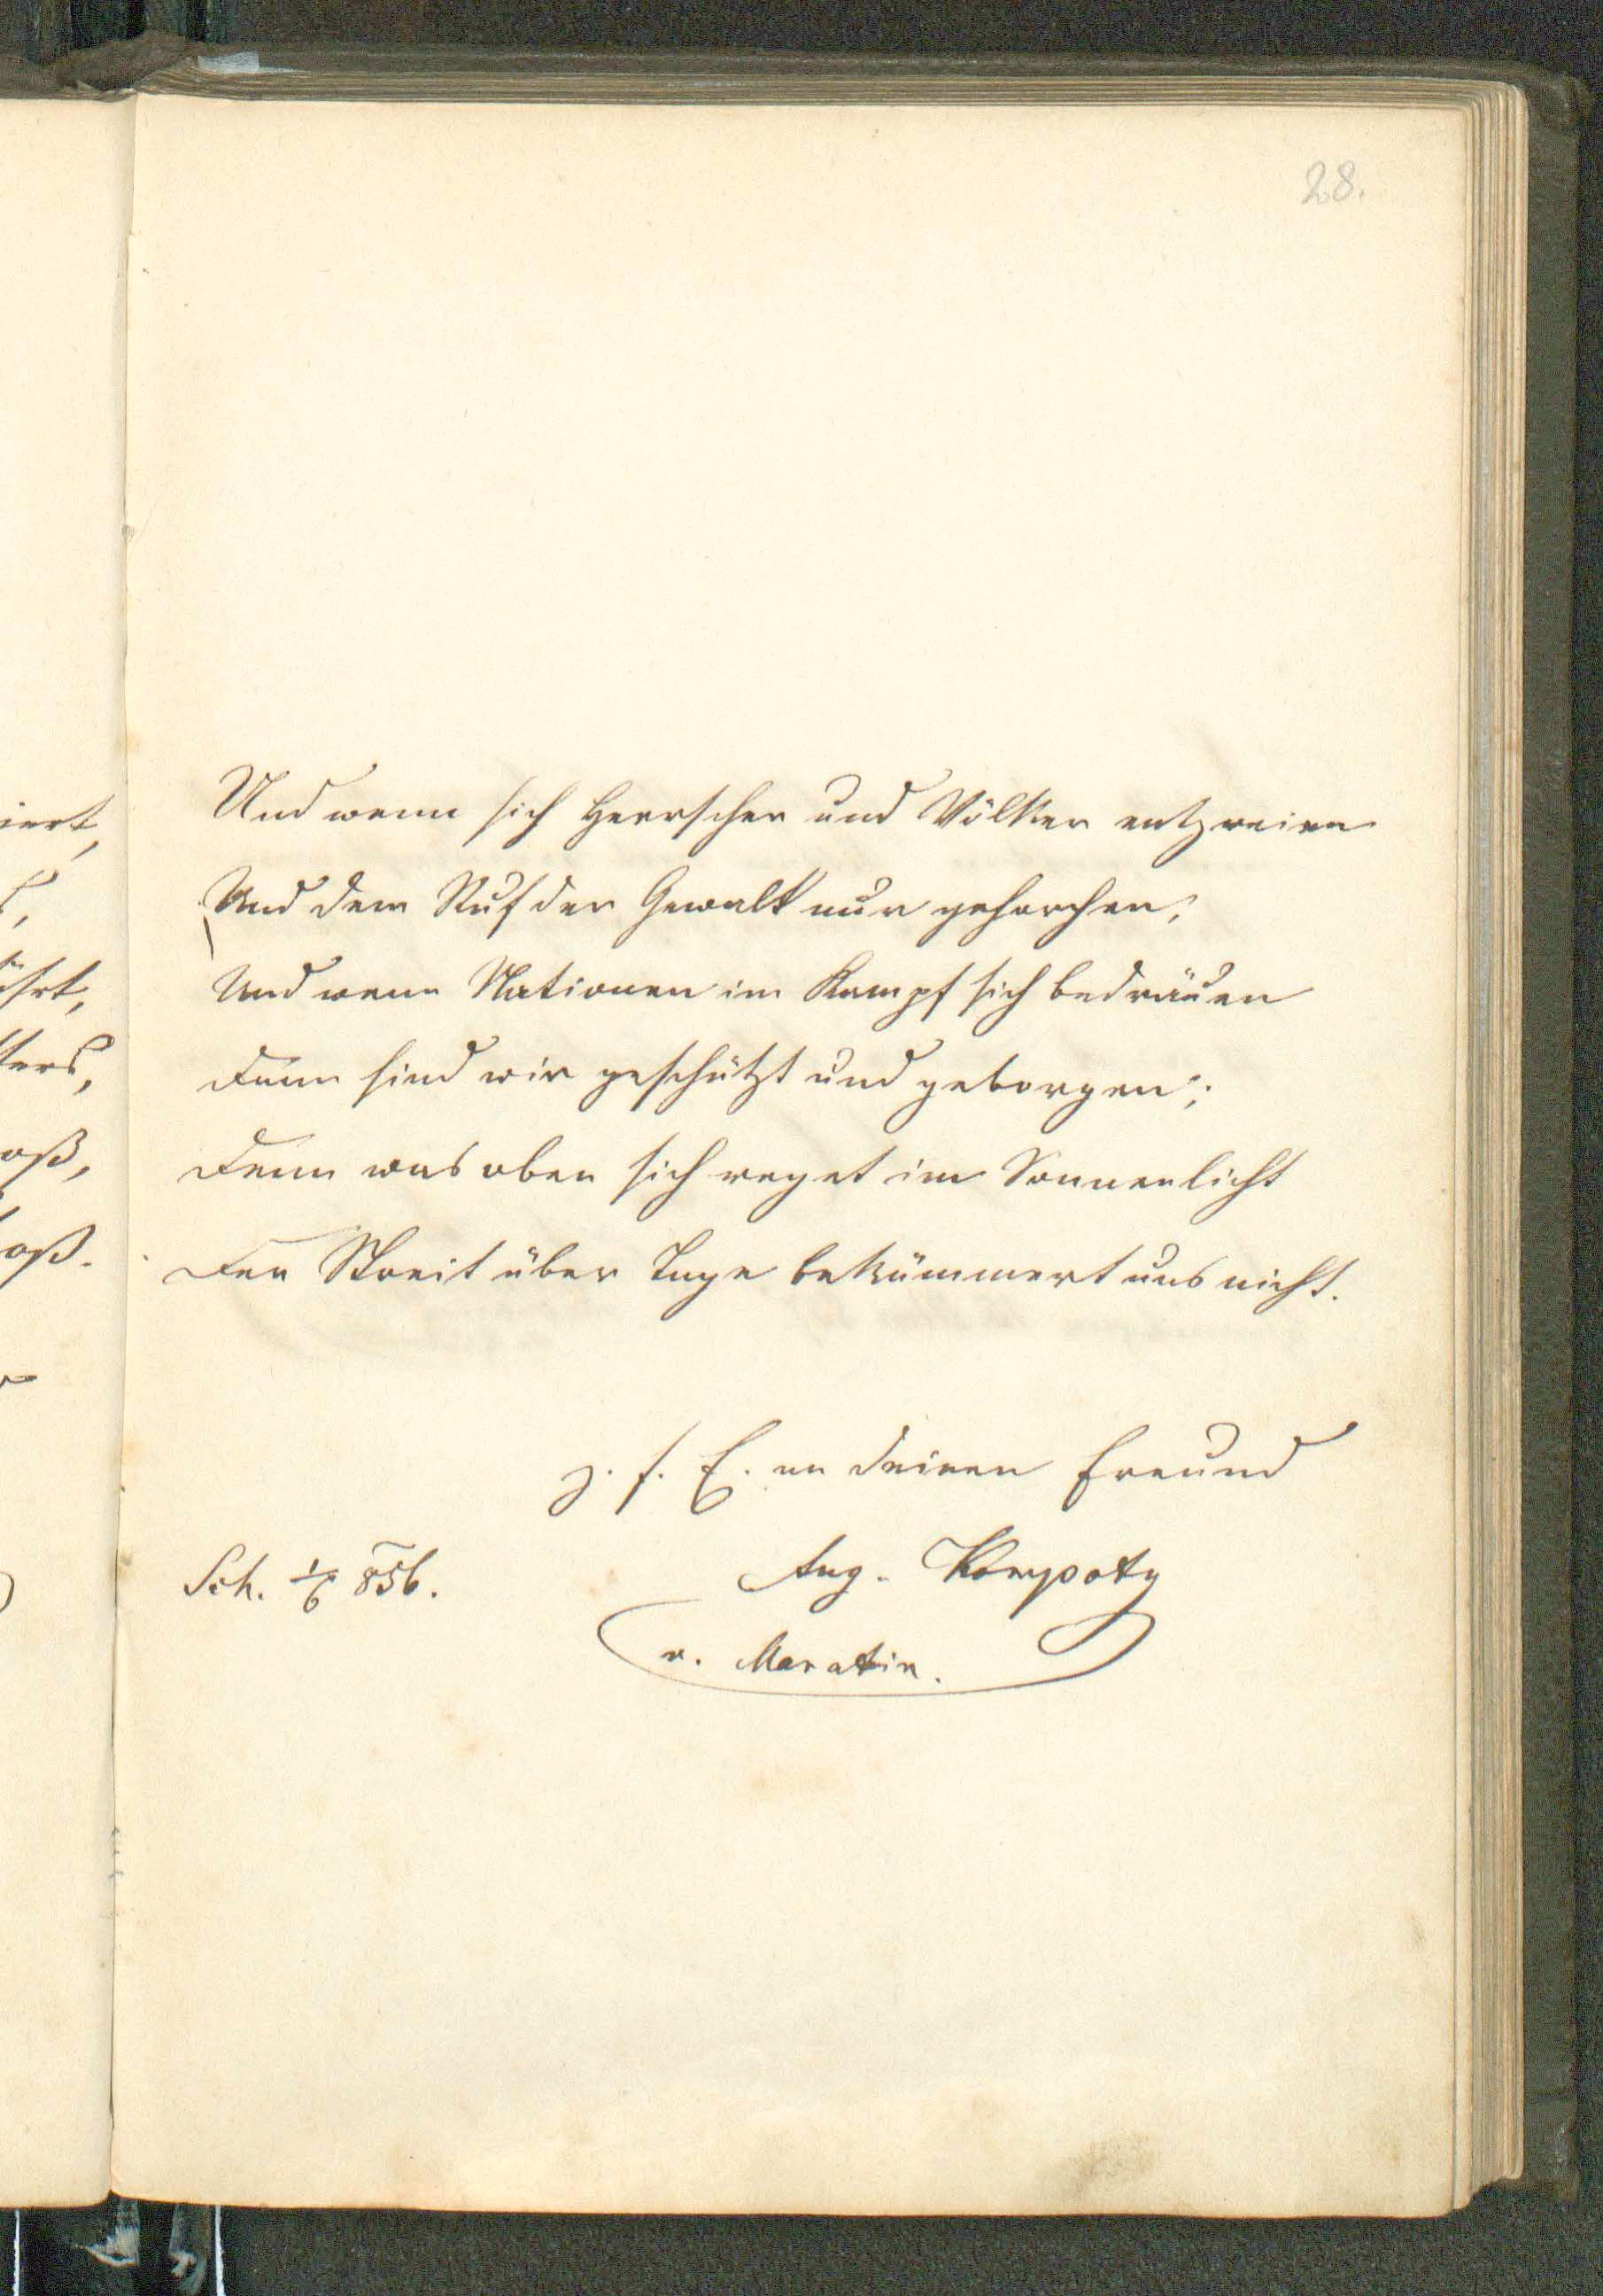 28.
Und wenn sich Herrscher und Völker entzweien
Und dem Ruf der Gewalt nur gehorchen;
Und wenn Nationen im Kampf sich bedräuen
Dann sind wir geschützt und geborgen;
Denn was oben sich reget im Sonnenlicht
Der Streit über Tage bekümmert uns nicht.
z. f. E. an deinen Freund
Sch. 1/6 856.
Aug.
v.
iert,
ührt,
ters,
oß,
oß.